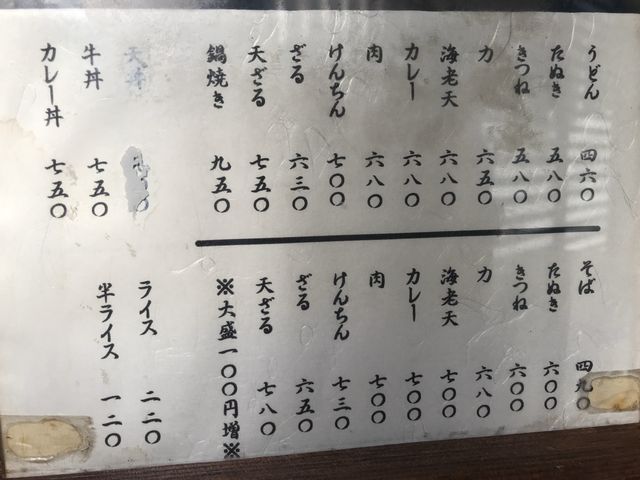 うどん 四六〇
たぬき 五八〇
きつね 五八〇
力 六五〇
海老天 六八〇
カレー 六八〇
肉 六八〇
けんちん 七〇〇
ざる 六三〇
天ざる 七五〇
鍋焼き 九五〇
天丼
牛丼 七五〇
カレー丼 七五〇
そば 四九〇
たぬき 六〇〇
きつね 六〇〇
力 六八〇
海老天 七〇〇
カレー 七〇〇
肉 七〇〇
けんちん 七三〇
ざる 六五〇
天ざる 七八〇
※大盛一〇〇円増※
ライス 二二〇
半ライス 一二〇